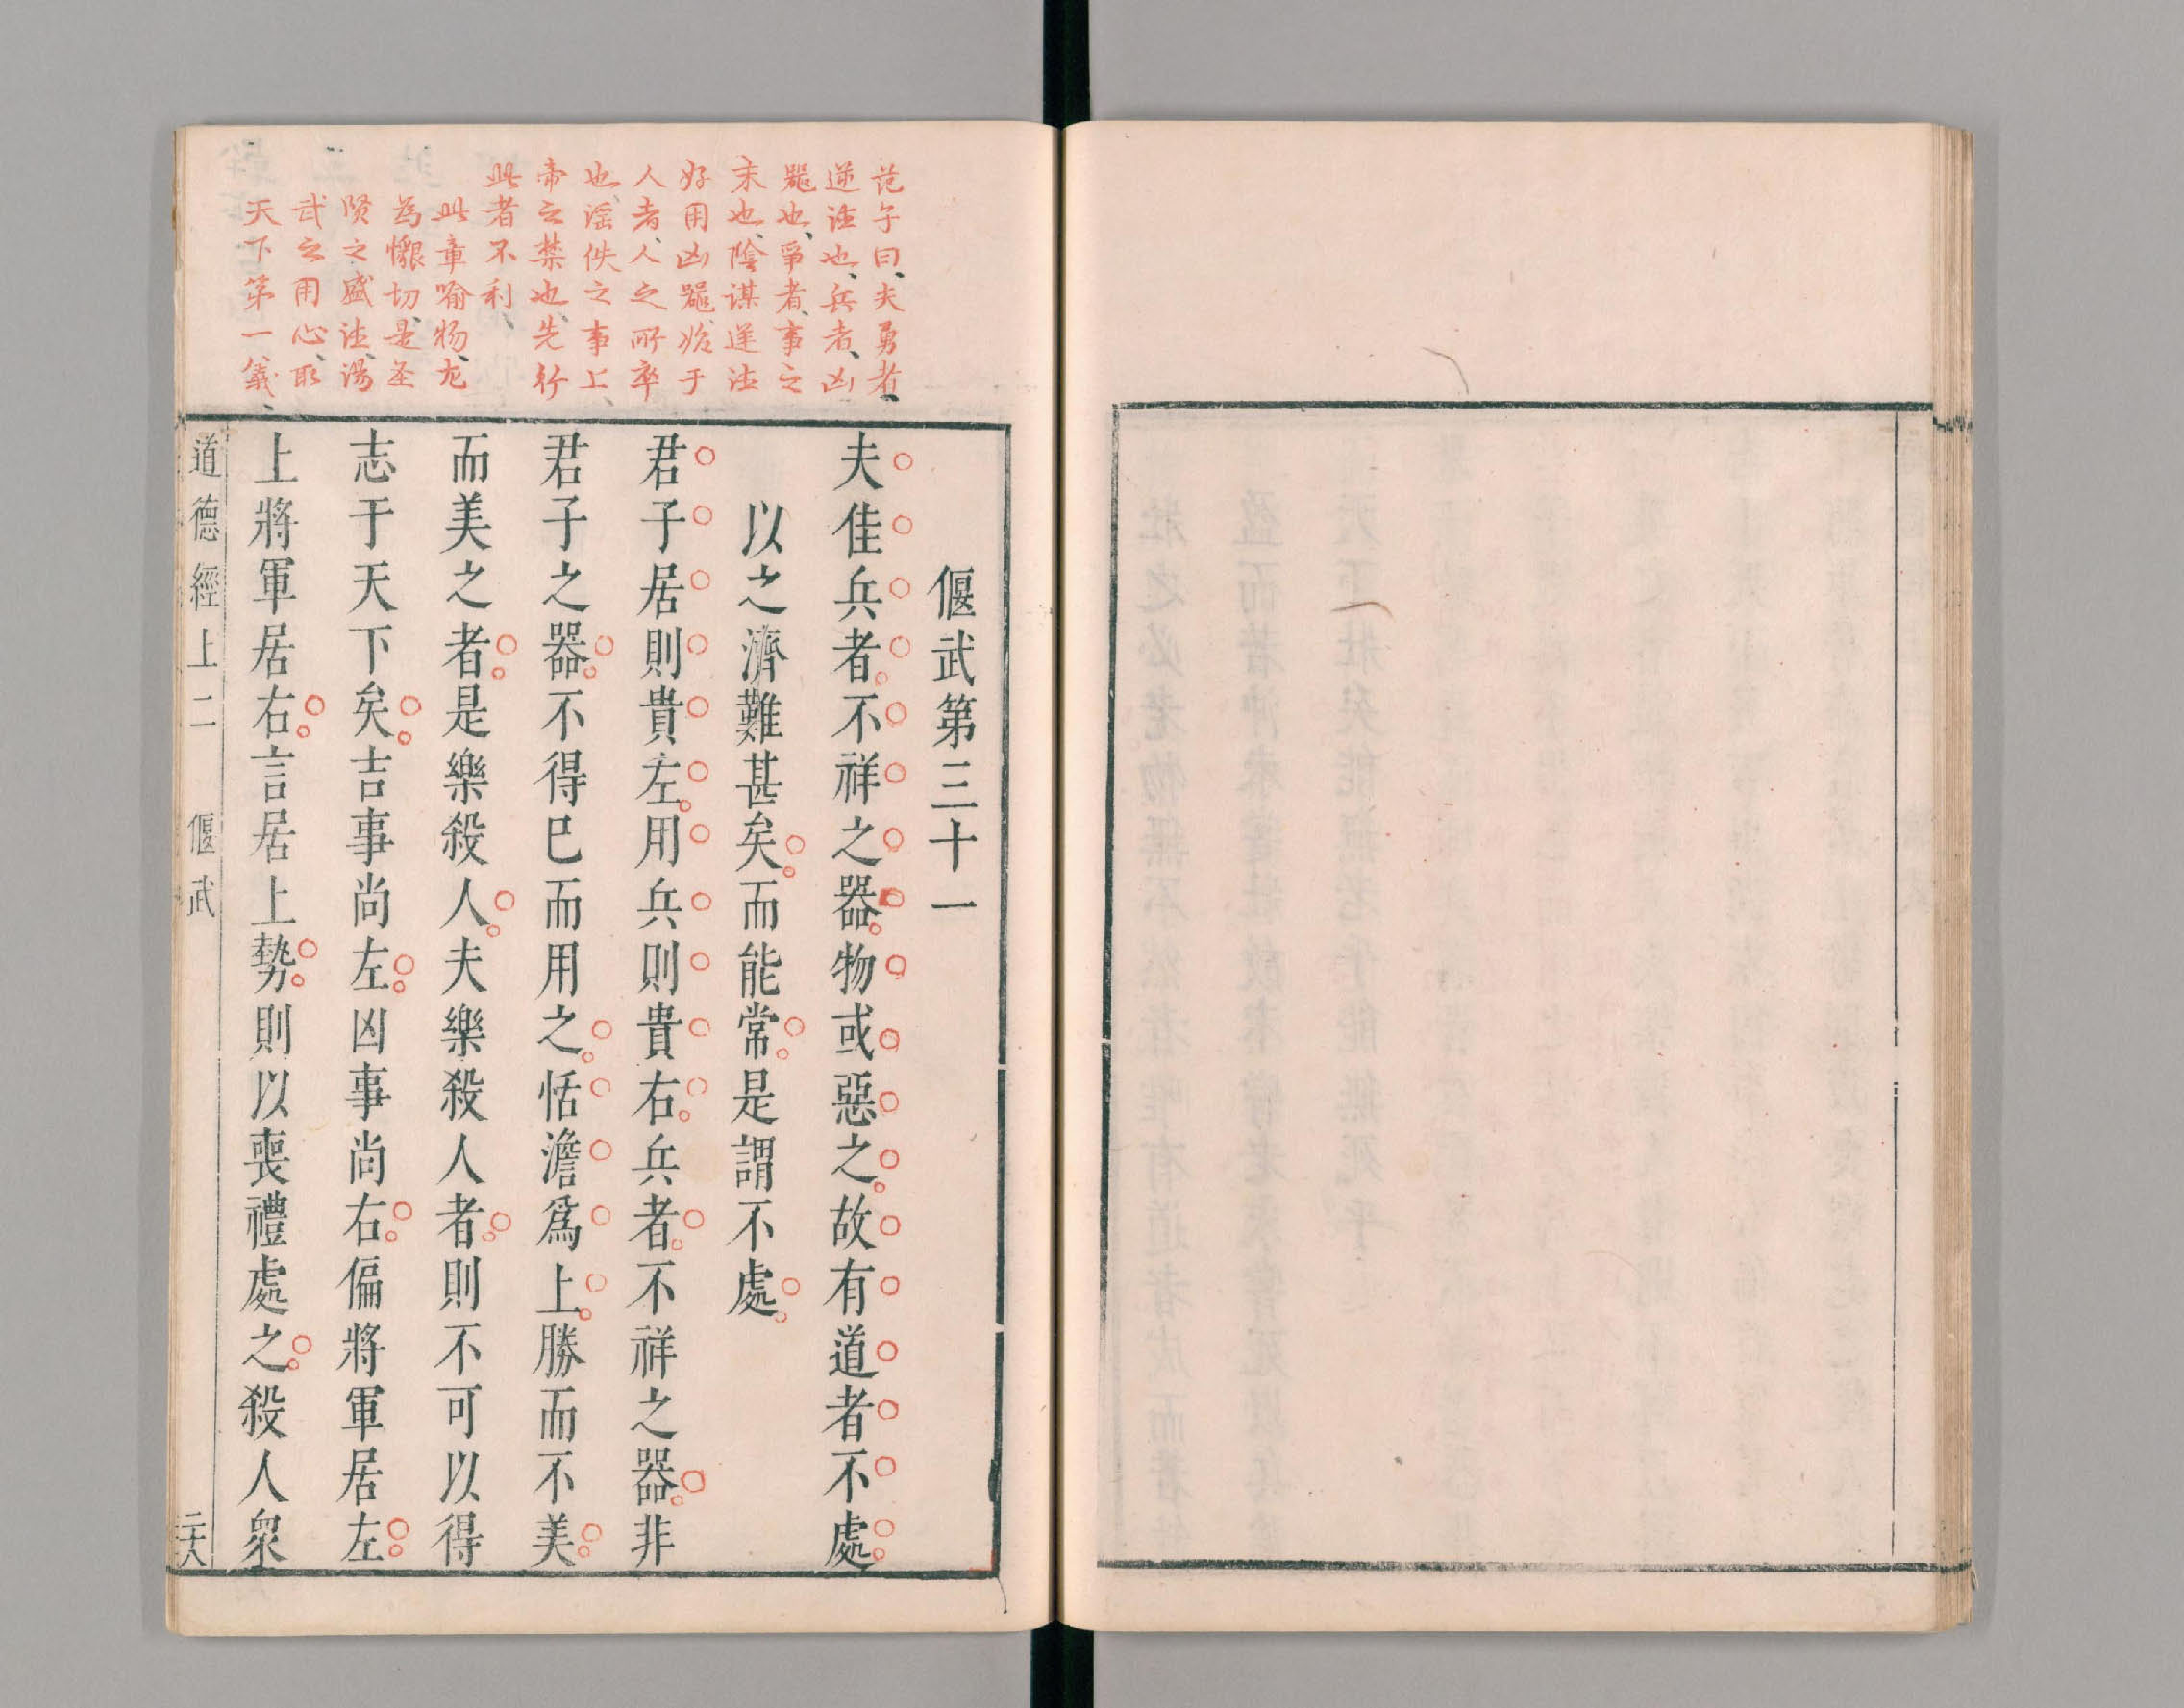 范子曰、夫勇者、
逆德也、兵者、凶
器也、爭者、事之
末也、陰謀逆德
好用凶器、始于
人者、人之所卒
也、淫佚之事上
帝之禁也、先行
此者不利、
此章喻物、尤
為懇切、是圣
賢之盛德、湯
武之用心、取
天下第一義、
偃武第三十一
夫佳兵者不祥之器物或惡之故有道者不處
以之濟難甚矣而能常是謂不處
君子居則貴左用兵則貴右兵者不祥之器非
君子之器不得已而用之恬澹爲上勝而不美
而美之者是樂殺人夫樂殺人者則不可以得
志于天下矣吉事尚左凶事尚右偏將軍居左
上將軍居右言居上勢則以喪禮處之殺人衆
道德經上二 偃武 二六